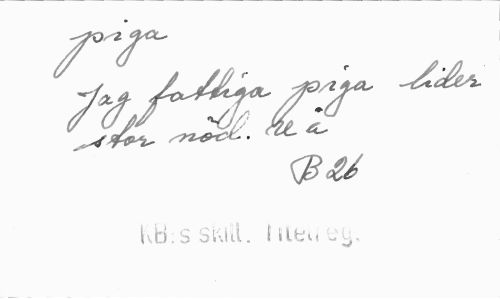 piga
Jag fattiga piga lider
stor nöd. u å
B 26
KB:s skill. Titelreg.